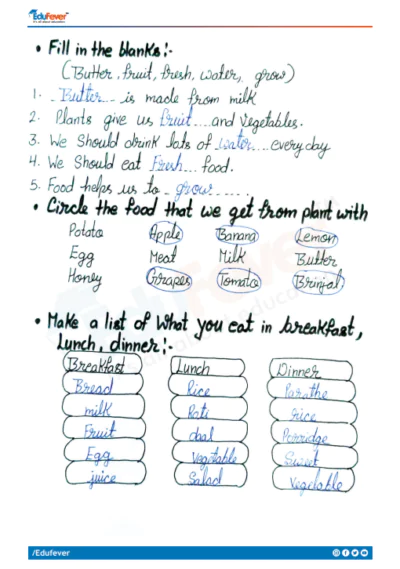 EduFever
• Fill in the blanks:-
(Butter, fruit, fresh, water, grow)
1. Butter is made from milk
2. Plants give us fruit and vegetables.
3. We Should drink lots of water everyday
4. We Should eat Fresh food.
5. Food helps us to grow
• Circle the food that we get from plant with
Potato Apple Banana Lemon
Egg Meat Milk Butter
Honey Grapes Tomato Brinjal
• Make a list of What you eat in breakfast,
Lunch, dinner:-
Breakfast Lunch Dinner
Bread Rice Paratha
milk Roti rice
Fruit daal Porridge
Egg Vegitable Sweet
juice Salad Vegetable
/Edufever